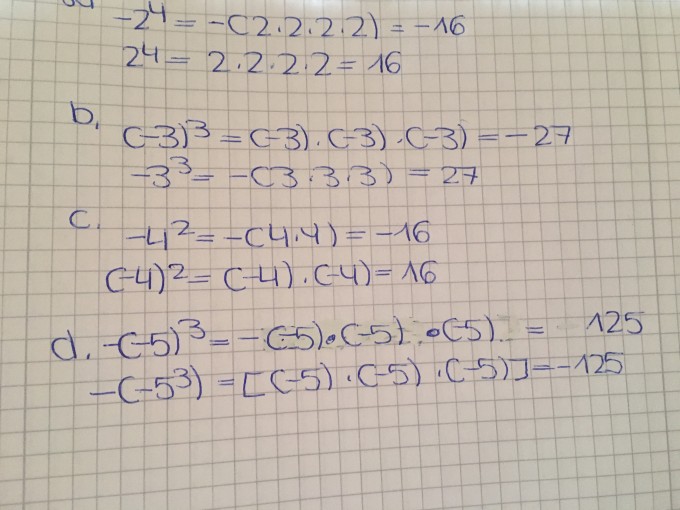 -2⁴ = -(2.2.2.2) = -16
2⁴ = 2.2.2.2 = 16
b. (-3)³ = (-3).(-3).(-3) = -27
-3³ = -(3.3.3) = 27
c. -4² = -(4.4) = -16
(-4)² = (-4).(-4) = 16
d. -(-5)³ = -(-5).(-5).(-5) = 125
-(-5³) = [(-5).(-5).(-5)] = -125